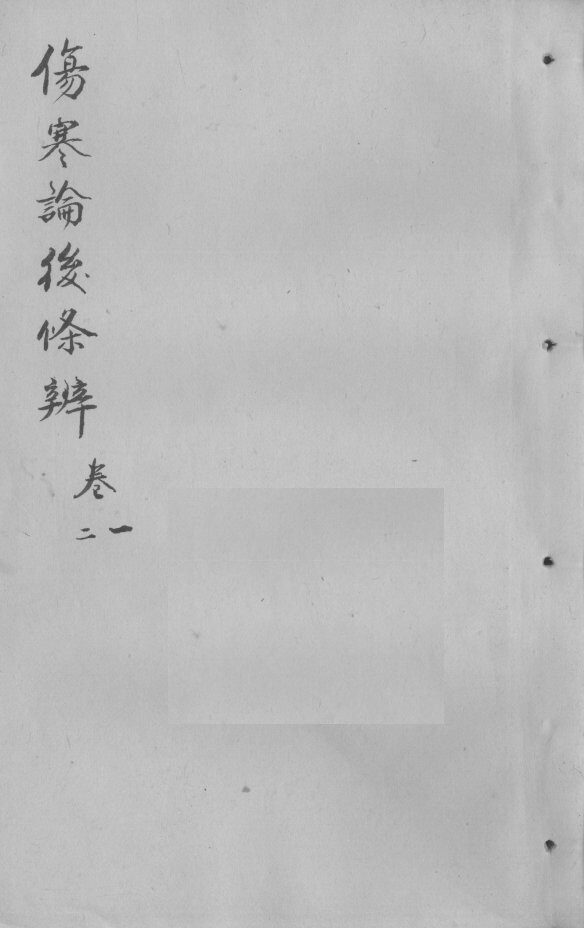 傷寒論後條辨
卷
一
二